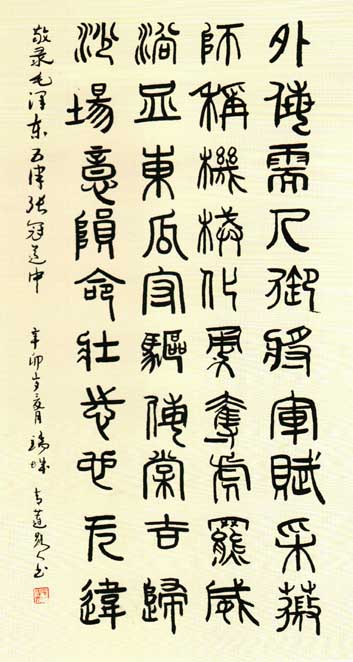 外侮需人御將軍賦采薇
師稱機械化勇奪虎羆威
浴血東瓜守驅倭棠吉歸
沙場意隕命壯志也无違
敬录毛泽东五律张冠道中 辛卯岁夏月